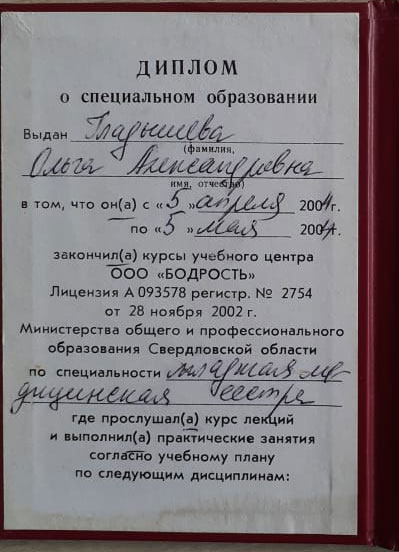 ДИПЛОМ
о специальном образовании
Выдан Гладышева
(фамилия,
Ольга Александровна
имя, отчество)
в том, что он(а) с «5 » апреля 2004г.
по «5 » мая 2004г.
закончил(а) курсы учебного центра
ООО «БОДРОСТЬ»
Лицензия А 093578 регистр. № 2754
от 28 ноября 2002 г.
Министерства общего и профессионального
образования Свердловской области
по специальности младшая ме-
дицинская сестра
где прослушал(а) курс лекций
и выполнил(а) практические занятия
согласно учебному плану
по следующим дисциплинам: